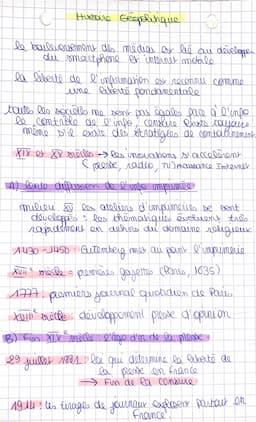 Histoire Géopolitique
le bouleversement des médias est lié au développe
du smartphone et internet mobile
la liberté de l'information est reconnu comme
une liberté fondamentale
toutes les sociétés ne sont pas égales face à l'info
le contrôle de l'info, censure existe toujours
même s'il existe des stratégies de contournement
XIX et XX siècles → les innovations s'accélèrent
(presse, radio, TV) naissance Internet
A) lente diffusion de l'info imprimée
milieu XV les ateliers d'imprimeries se sont
développés : les thématiques évoluent très
rapidement en dehors du domaine religieux
1430-1450 Gutenberg met au point l'imprimerie
XVIIe siècle = premières gazettes (Paris, 1635)
1777 : premiers journal quotidien de Paris
XVIIIe siècle développement presse d'opinion
B) Fin XIXe siècle l'âge d'or de la presse
29 juillet 1881 : loi qui détermine la liberté de
la presse en France
→ Fin de la censure
1914 : les tirages de journaux explosent partout en
France